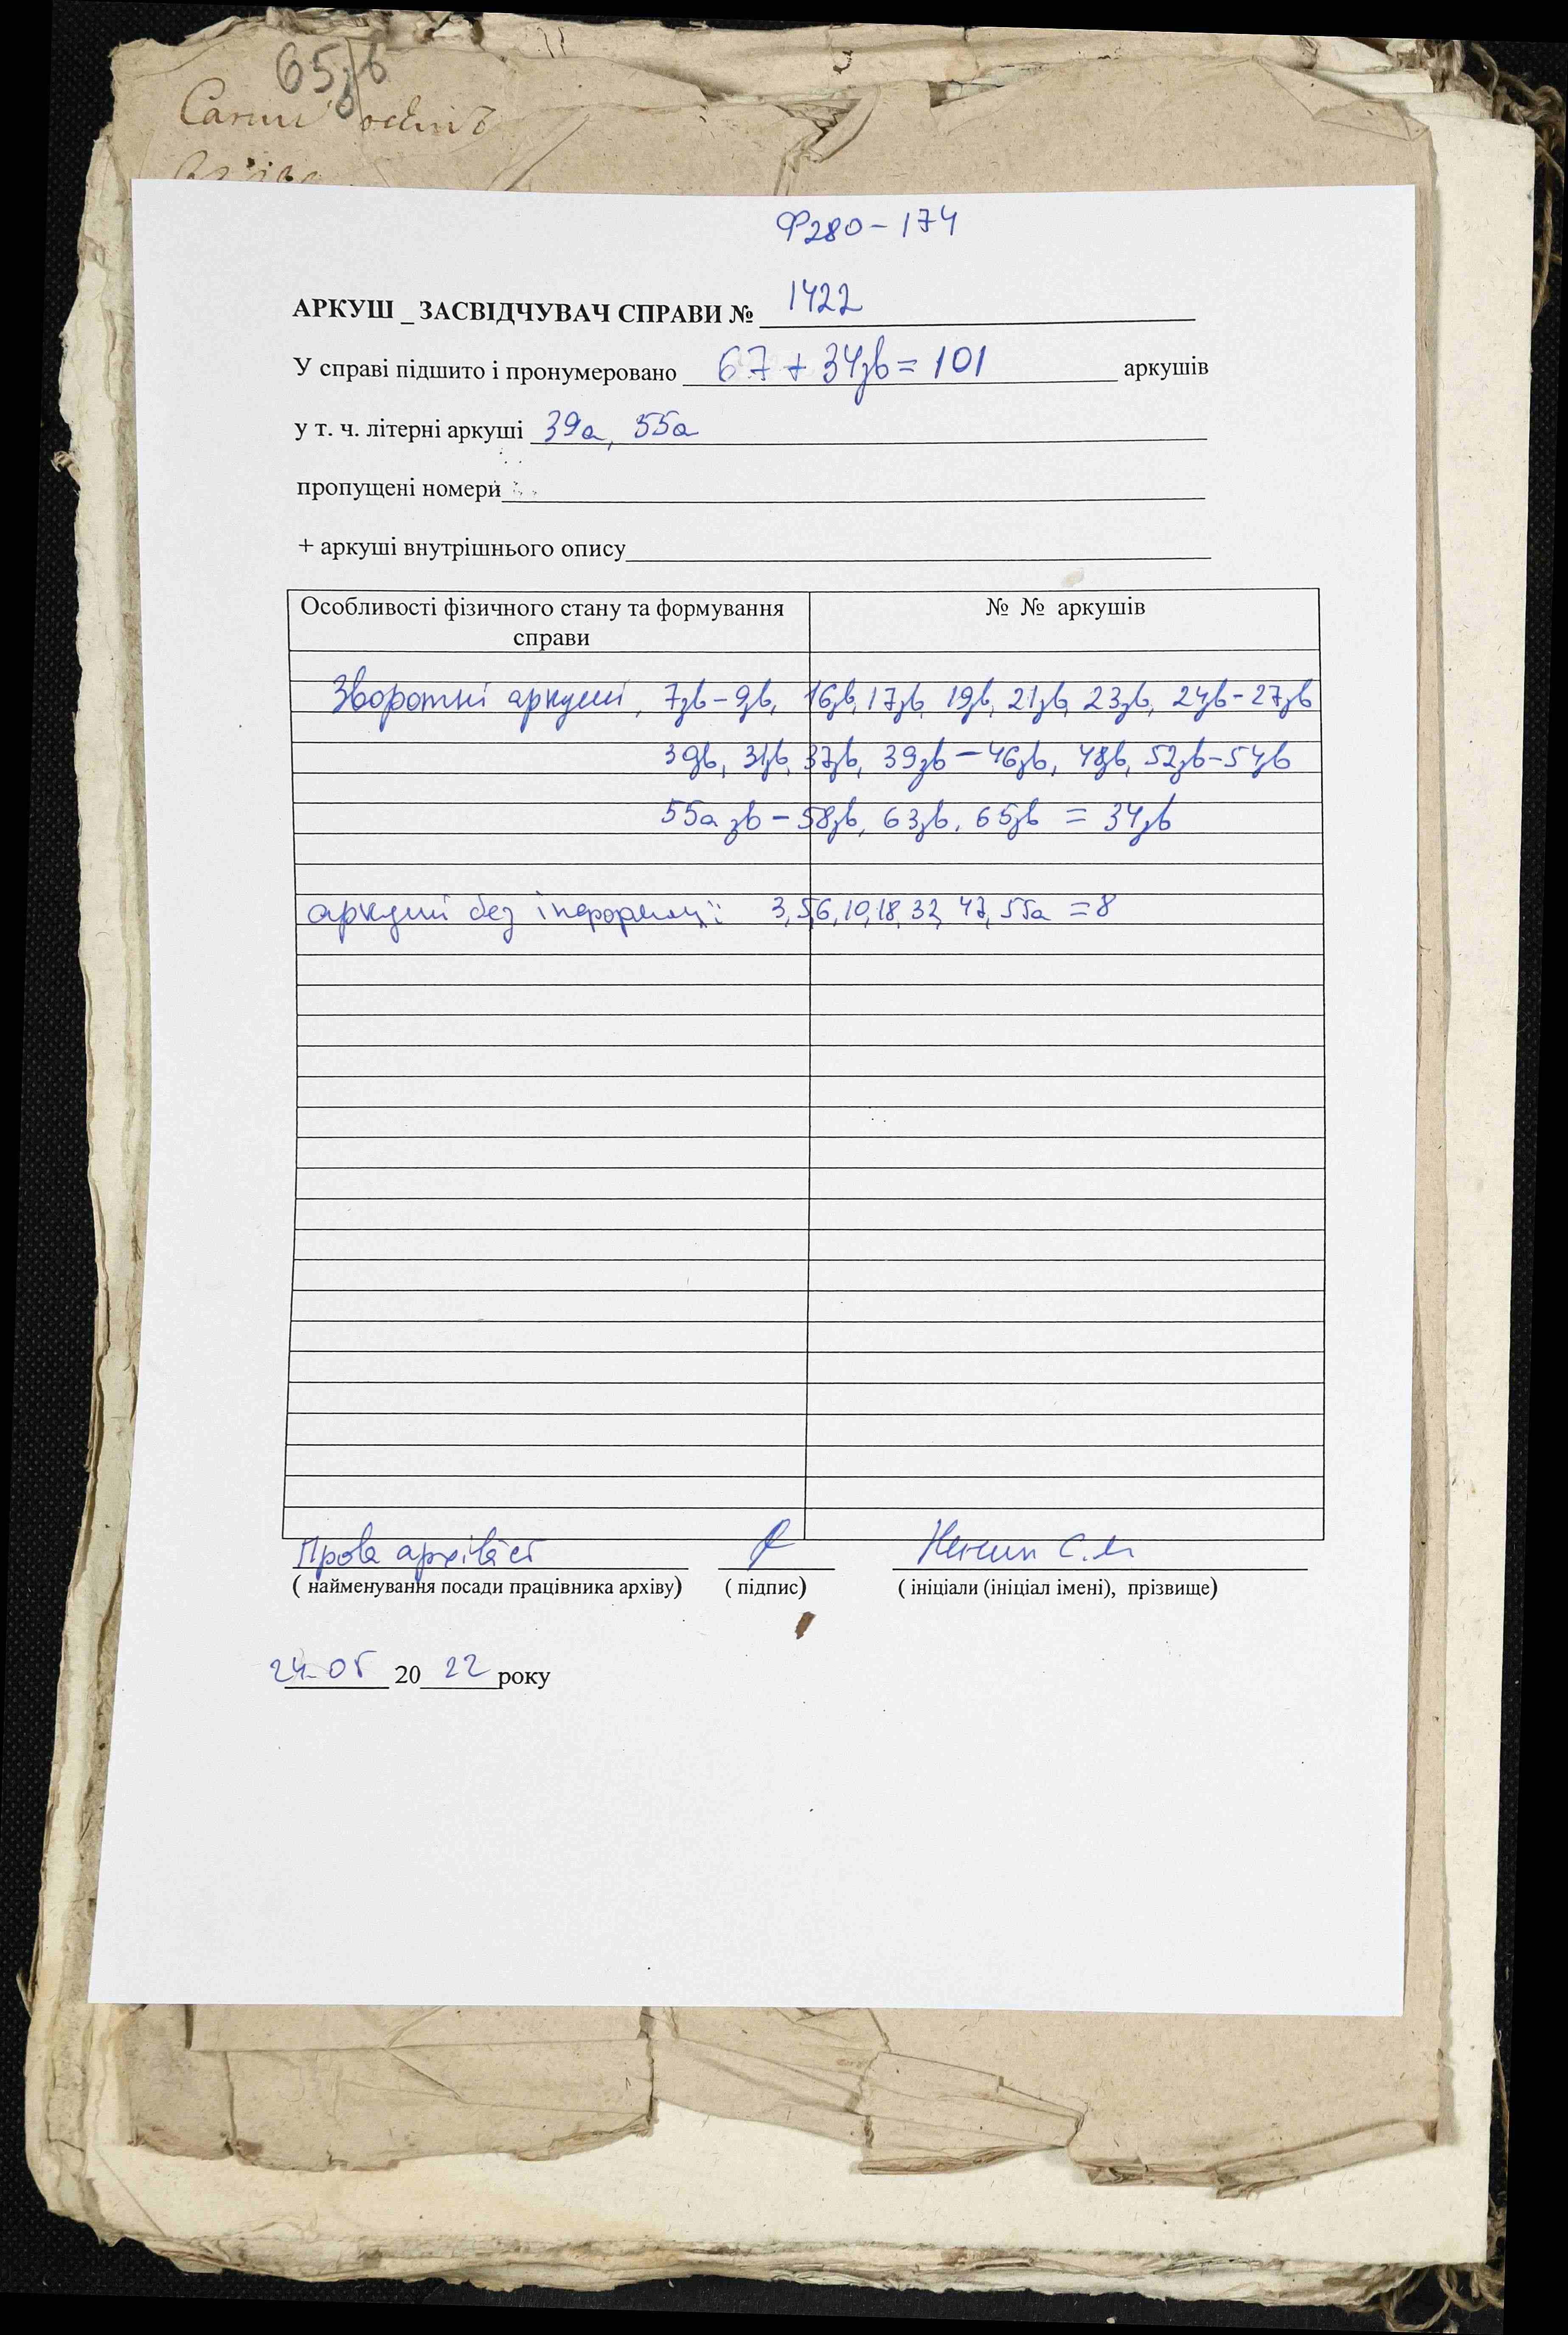 65зв
Ф280-174
АРКУШ _ ЗАСВІДЧУВАЧ СПРАВИ № 1422
У справі підшито і пронумеровано 67 + 34зв = 101 аркушів
у т. ч. літерні аркуші 39а, 55а
пропущені номери
+ аркуші внутрішнього опису
Особливості фізичного стану та формування справи
№ № аркушів
Зворотні аркуші, 7зв-9зв, 16зв, 17зв, 19зв, 21зв, 23зв, 24зв-27зв
30зв, 31зв, 37зв, 39зв-46зв, 48зв, 52зв-54зв
55а зв - 58зв, 63зв, 65зв = 34зв
аркуші без інформації 3, 5, 6, 10, 18, 32, 47, 55а = 8
Пров архівіст
С.М
( найменування посади працівника архіву) ( підпис) ( ініціали (ініціал імені), прізвище)
24.05 2022 року